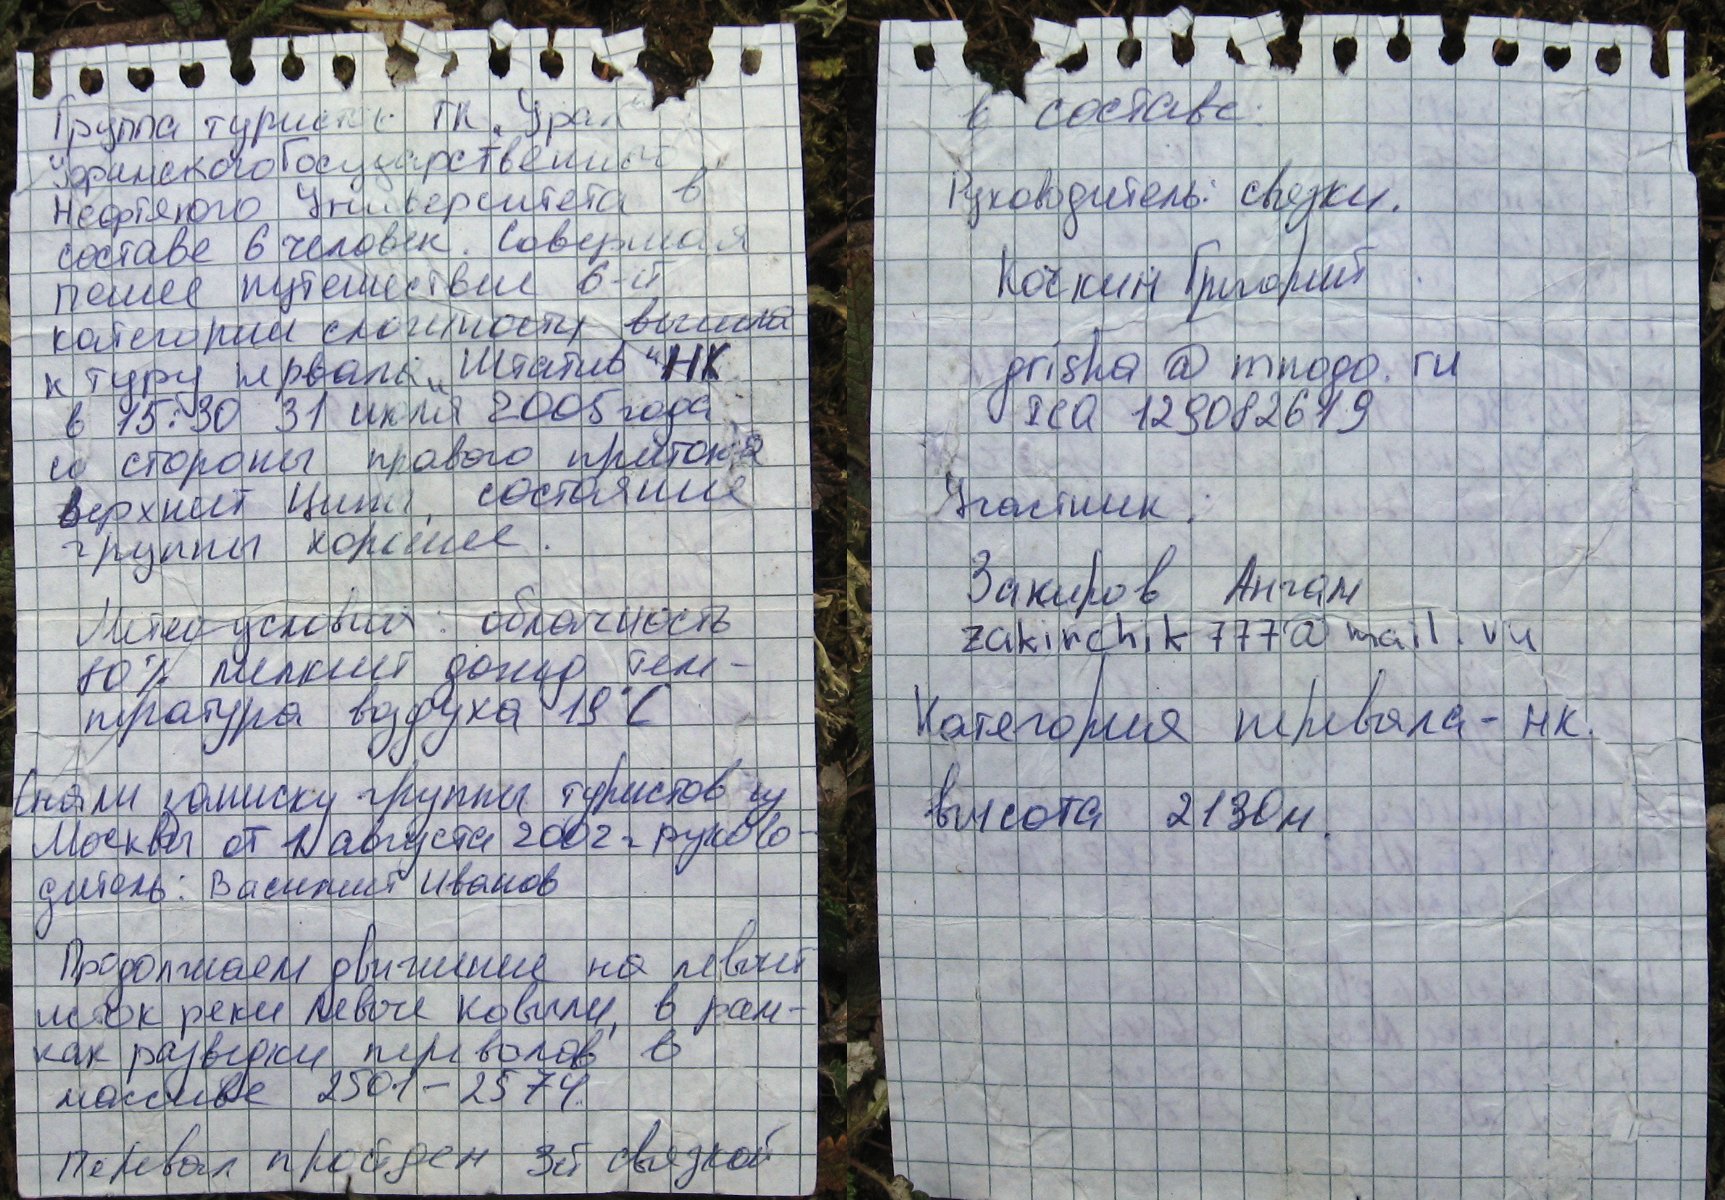 Группа туристов ТК "Урал"
Уфимского Государственного
Нефтяного Университета в
составе 6 человек. Совершая
пешее путешествие 6-й
категории сложности вышла
к туру перевала "Штатив" НК
в 15:30 31 июля 2005 года
со стороны правого притока
верхней Ципы, состояние
группы хорошее.
Метеоусловия: облачность
80% мелкий дождь тем-
пература воздуха 19°C
Сняли записку группы туристов из
Москвы от 1 августа 2002 г руково-
дитель: Василий Иванов
Продолжаем движение на левый
исток реки Левые Ковыли, в рам-
ках разведки перевалов в
массиве 2501-2574.
Перевал пройден 3й связкой
в составе:
Руководитель: связки.
Кочкин Григорий
grisha@mnogo.ru
ICQ 129082619
Участник:
Закиров Ангам
zakirchik777@mail.ru
Категория перевала - нк.
высота 2130м.